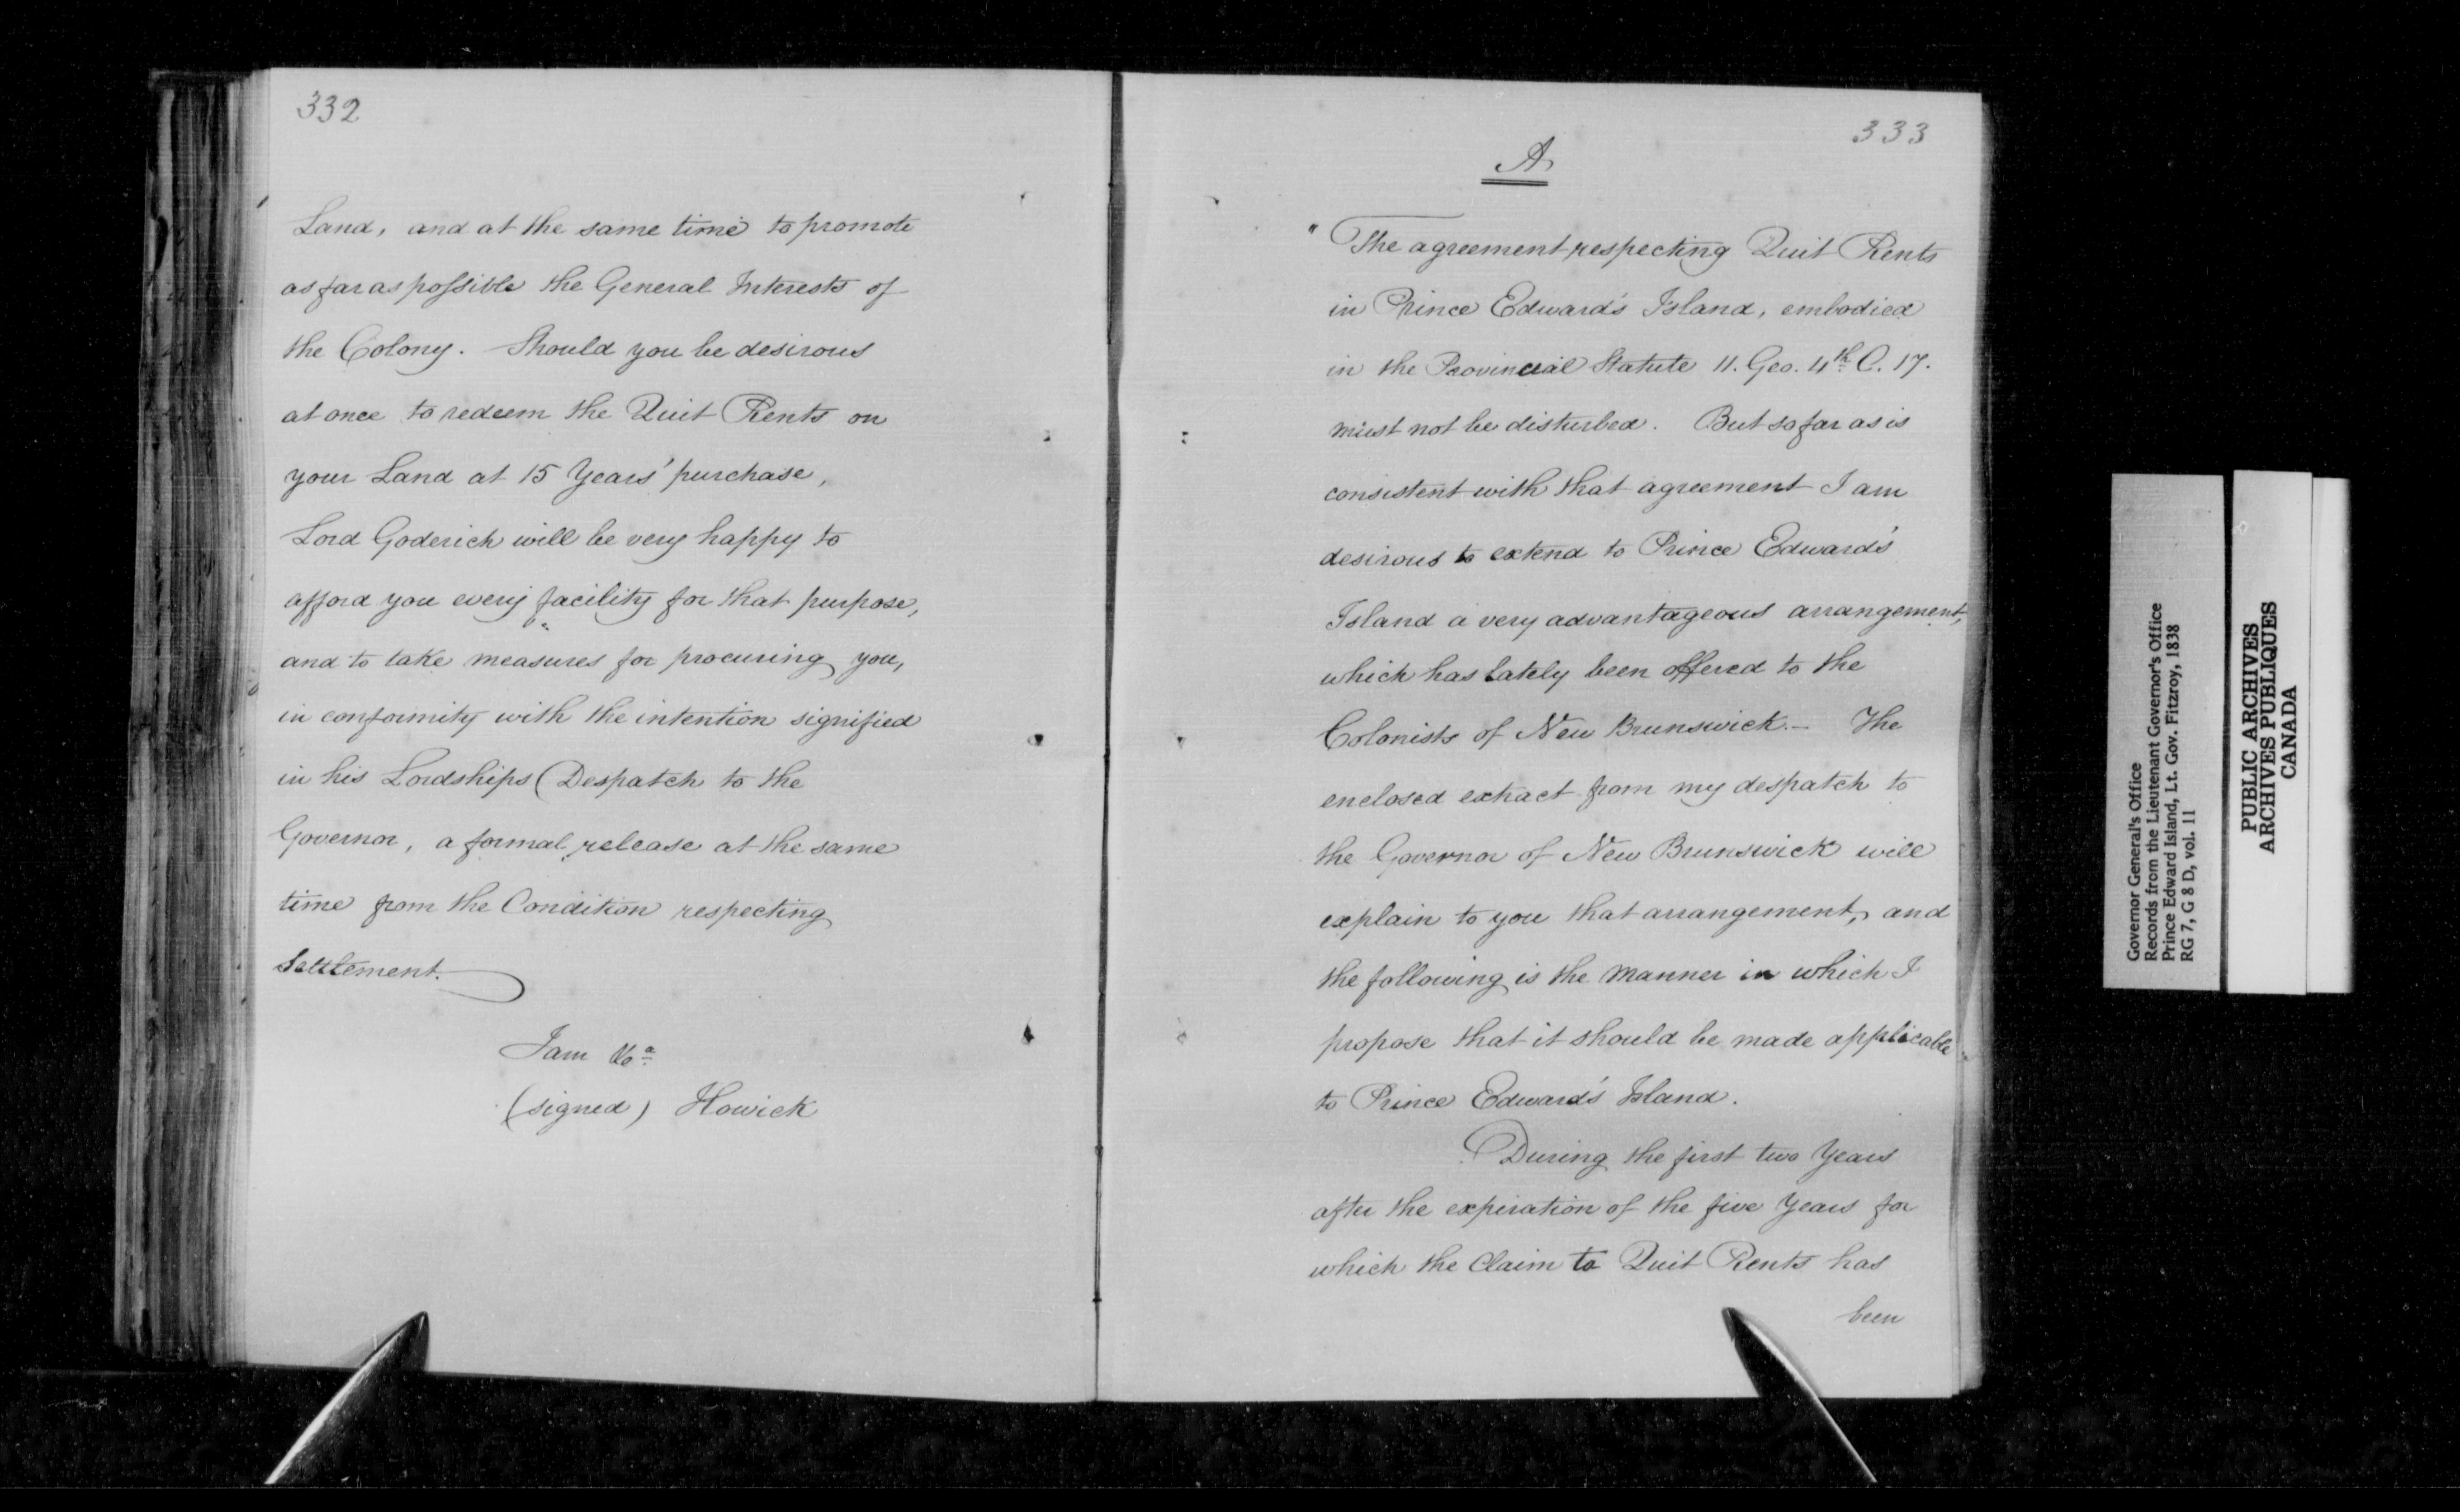 332
Land, and at the same time to promote
as far as possible the General Interests of
the Colony. Should you be desirous
at once to redeem the Quit Rents on
your Land at 15 Years' purchase,
Lord Goderich will be very happy to
afford you every facility for that purpose,
and to take measures for procuring you,
in conformity with the intention signified
in his Lordships Despatch to the
Governor, a formal release at the same
time from the Condition respecting
Settlement.
I am &c.
(signed) Howick
333
A
"The agreement respecting Quit Rents
in Prince Edward's Island, embodied
in the Provincial Statute 11. Geo. 4th C. 17.
must not be disturbed. But so far as is
consistent with that agreement I am
desirous to extend to Prince Edward's
Island a very advantageous arrangement,
which has lately been offered to the
Colonists of New Brunswick.— The
enclosed extract from my despatch to
the Governor of New Brunswick will
explain to you that arrangement, and
the following is the manner in which I
propose that it should be made applicable
to Prince Edward's Island.
During the first two Years
after the expiration of the five Years for
which the Claim to Quit Rents has
been
Governor General's Office
Records from the Lieutenant Governor's Office
Prince Edward Island, Lt. Gov. Fitzroy, 1838
RG 7, G 8 D, vol. 11
PUBLIC ARCHIVES
ARCHIVES PUBLIQUES
CANADA